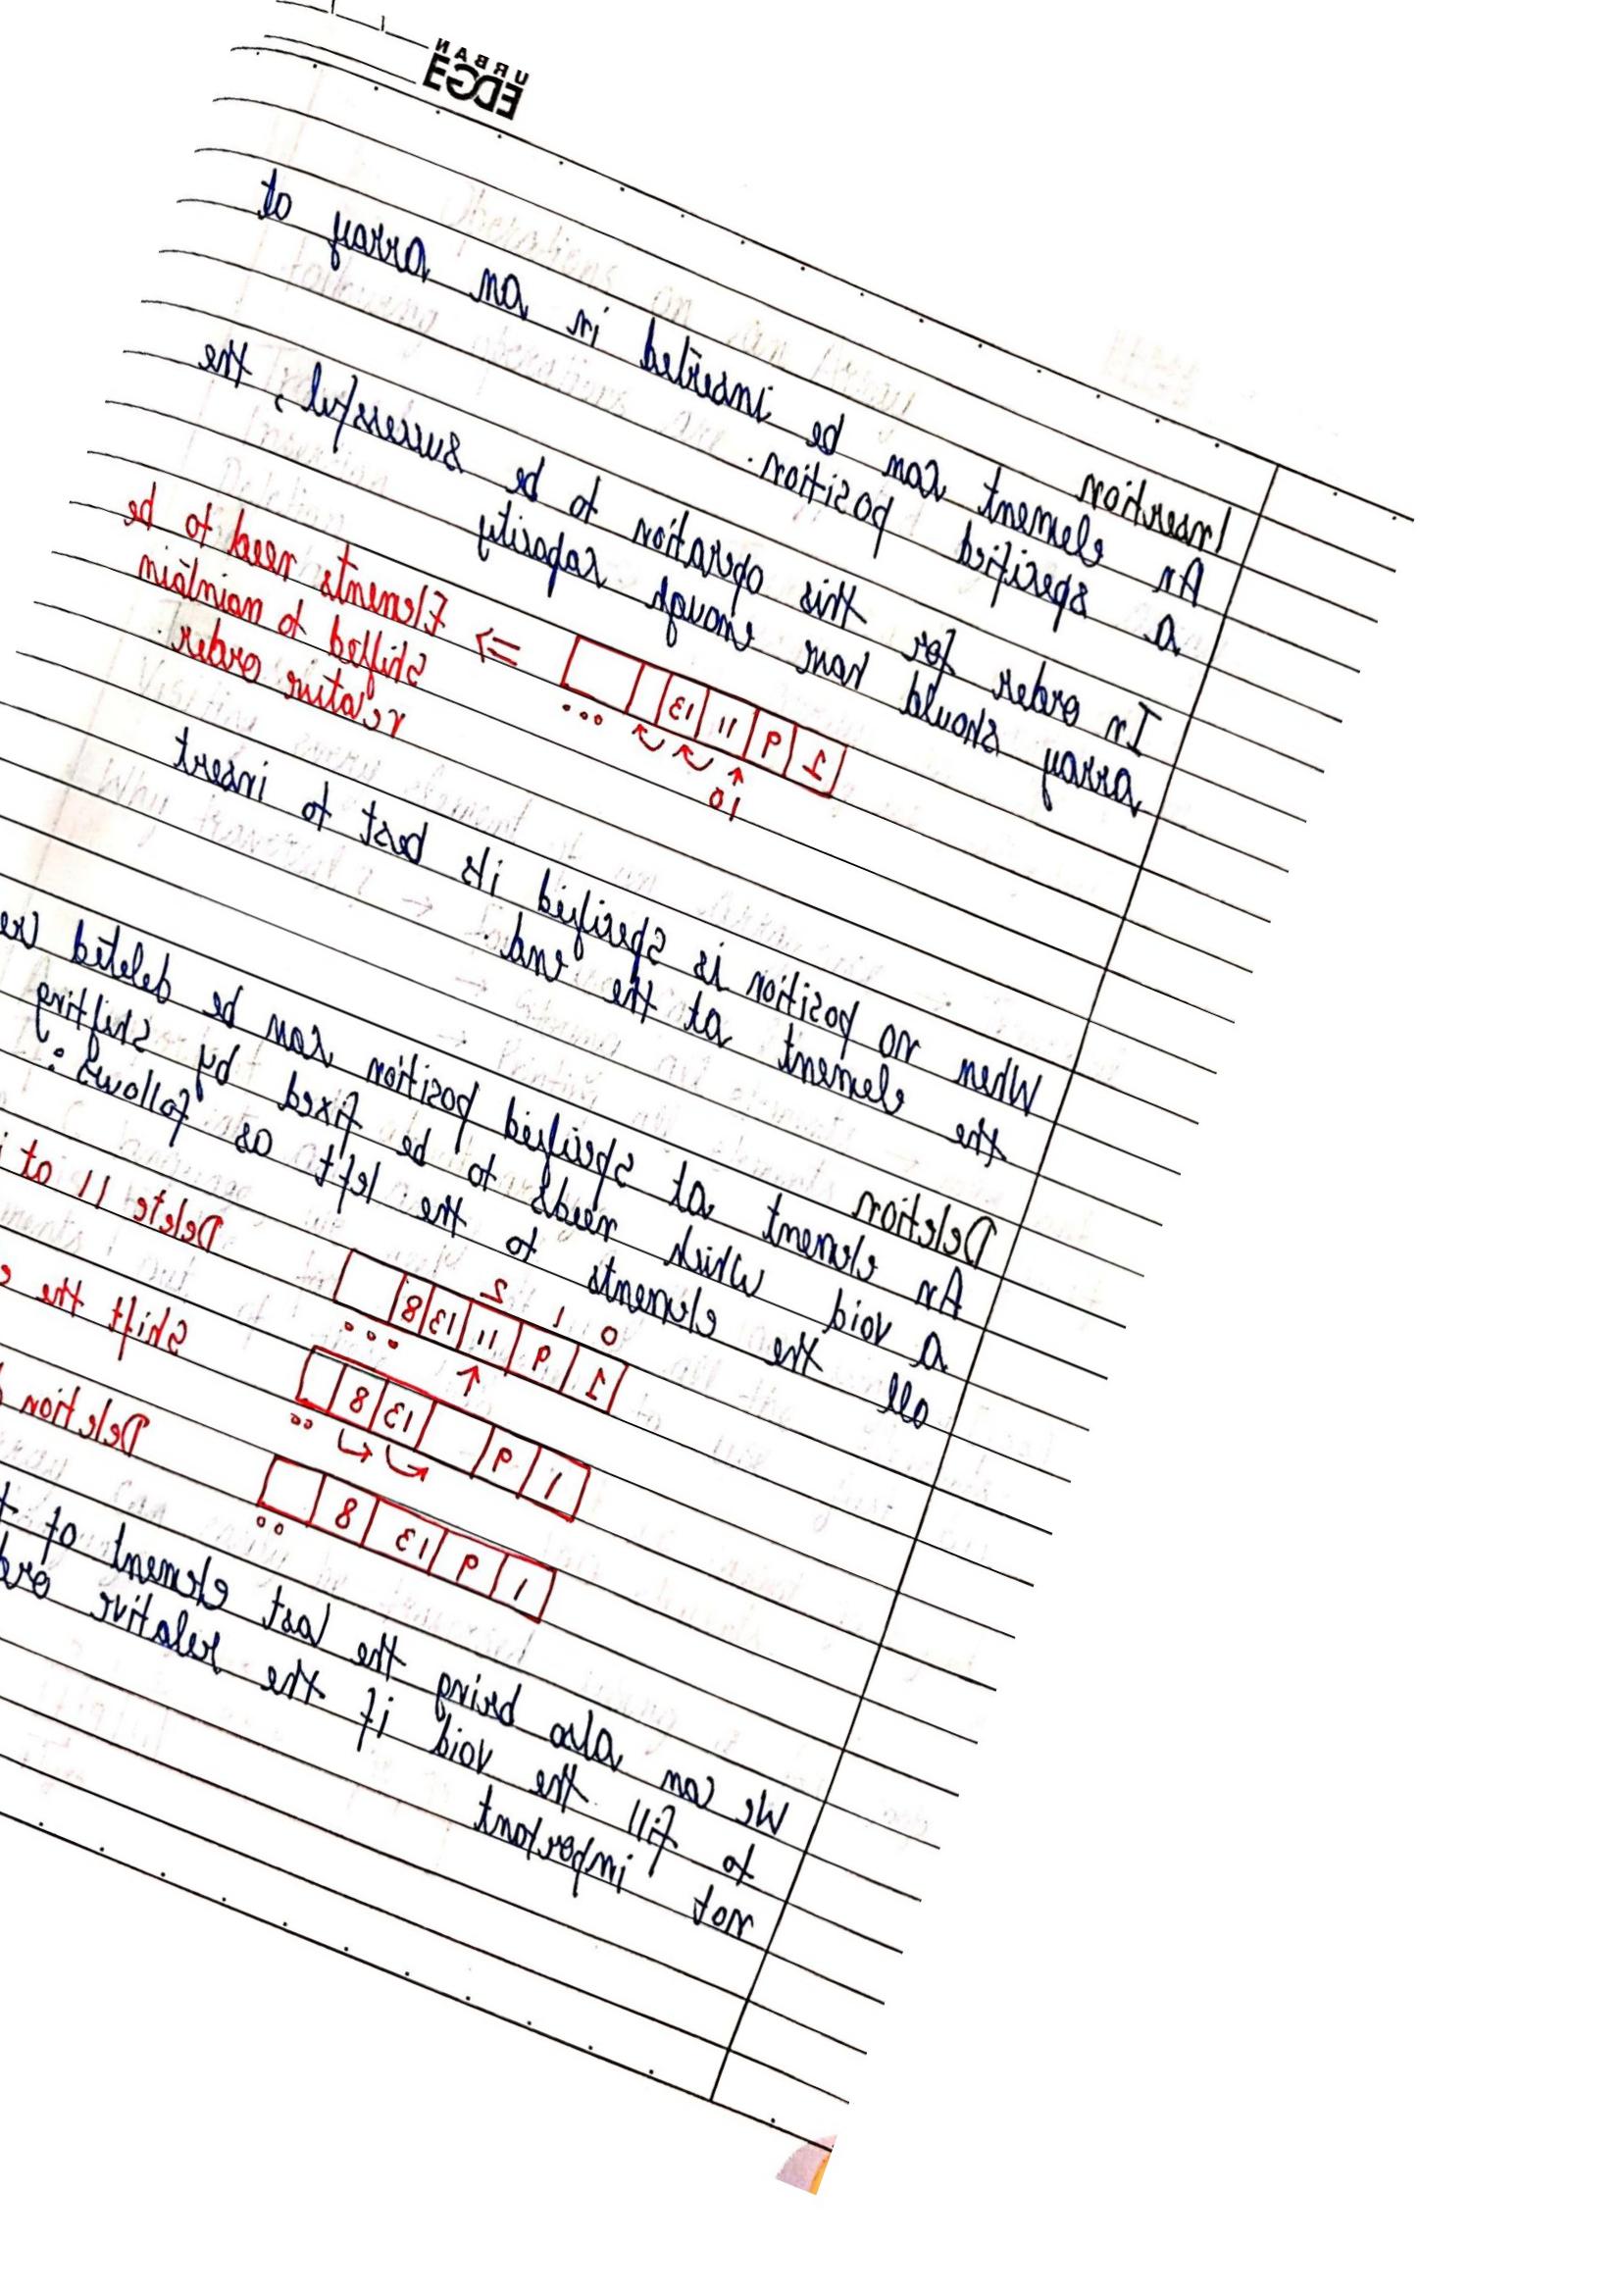 URBAN
EDGE
Insertion
An element can be inserted in an array at
a specified position.
In order for this operation to be successful, the
array should have enough capacity
1 9 11 13 ... => Elements need to be
10 shifted to maintain
relative order.
When no position is specified its best to insert
the element at the end.
Deletion
An element at specified position can be deleted
a void which needs to be fixed by shifting
all the elements to the left as follows:
0 1 2
1 9 11 13 8 ... Delete 11 at
1 9 13 8 .. Shift the
1 9 13 8 .. Deletion
We can also bring the last element of
to fill the void if the relative
not important